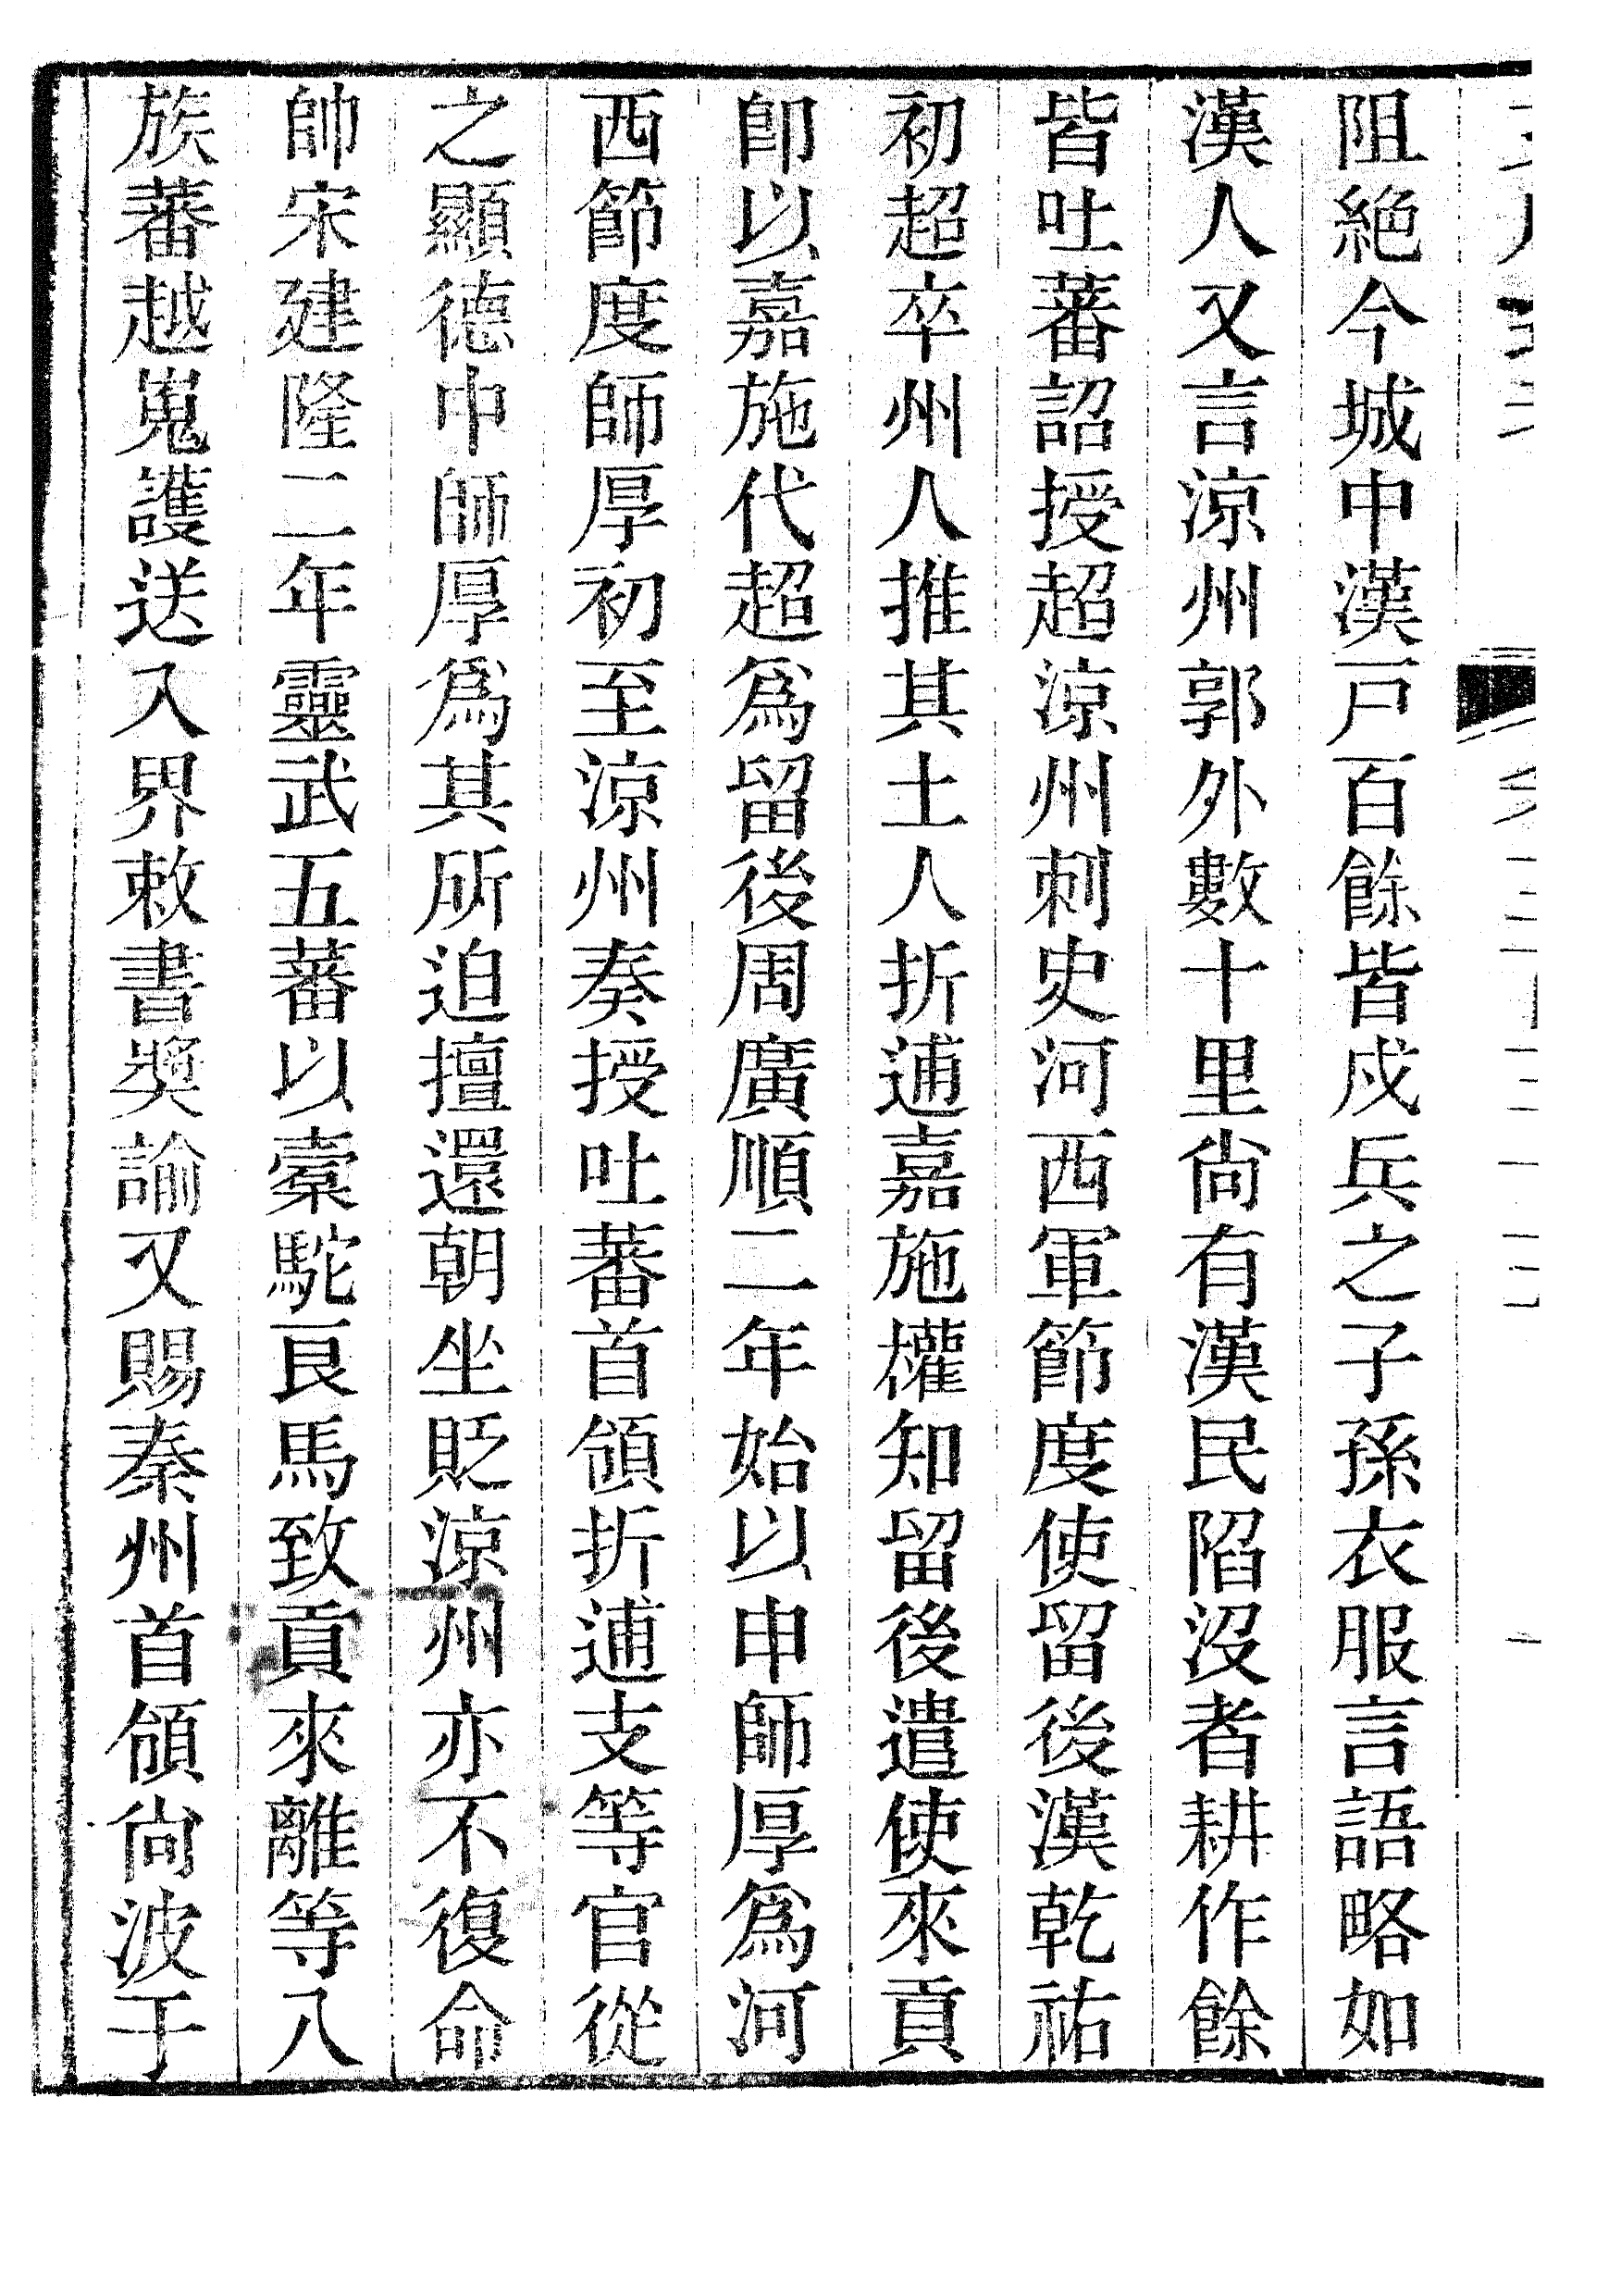 阻絶今城中漢戸百餘皆戍兵之子孫衣服言語略如
漢人又言涼州郭外數十里尙有漢民陷沒者耕作餘
皆吐蕃詔授超涼州刺史河西軍節度使留後漢乾祐
初超卒州人推其土人折逋嘉施權知留後遣使來貢
卽以嘉施代超爲留後周廣順二年始以申師厚爲河
西節度師厚初至涼州奏授吐蕃首領折逋支等官從
之顯德中師厚爲其所迫擅還朝坐貶涼州亦不復命
帥宋建隆二年靈武五蕃以橐駝良馬致貢來離等八
族蕃越嵬護送入界敕書奬諭又賜秦州首領尙波于